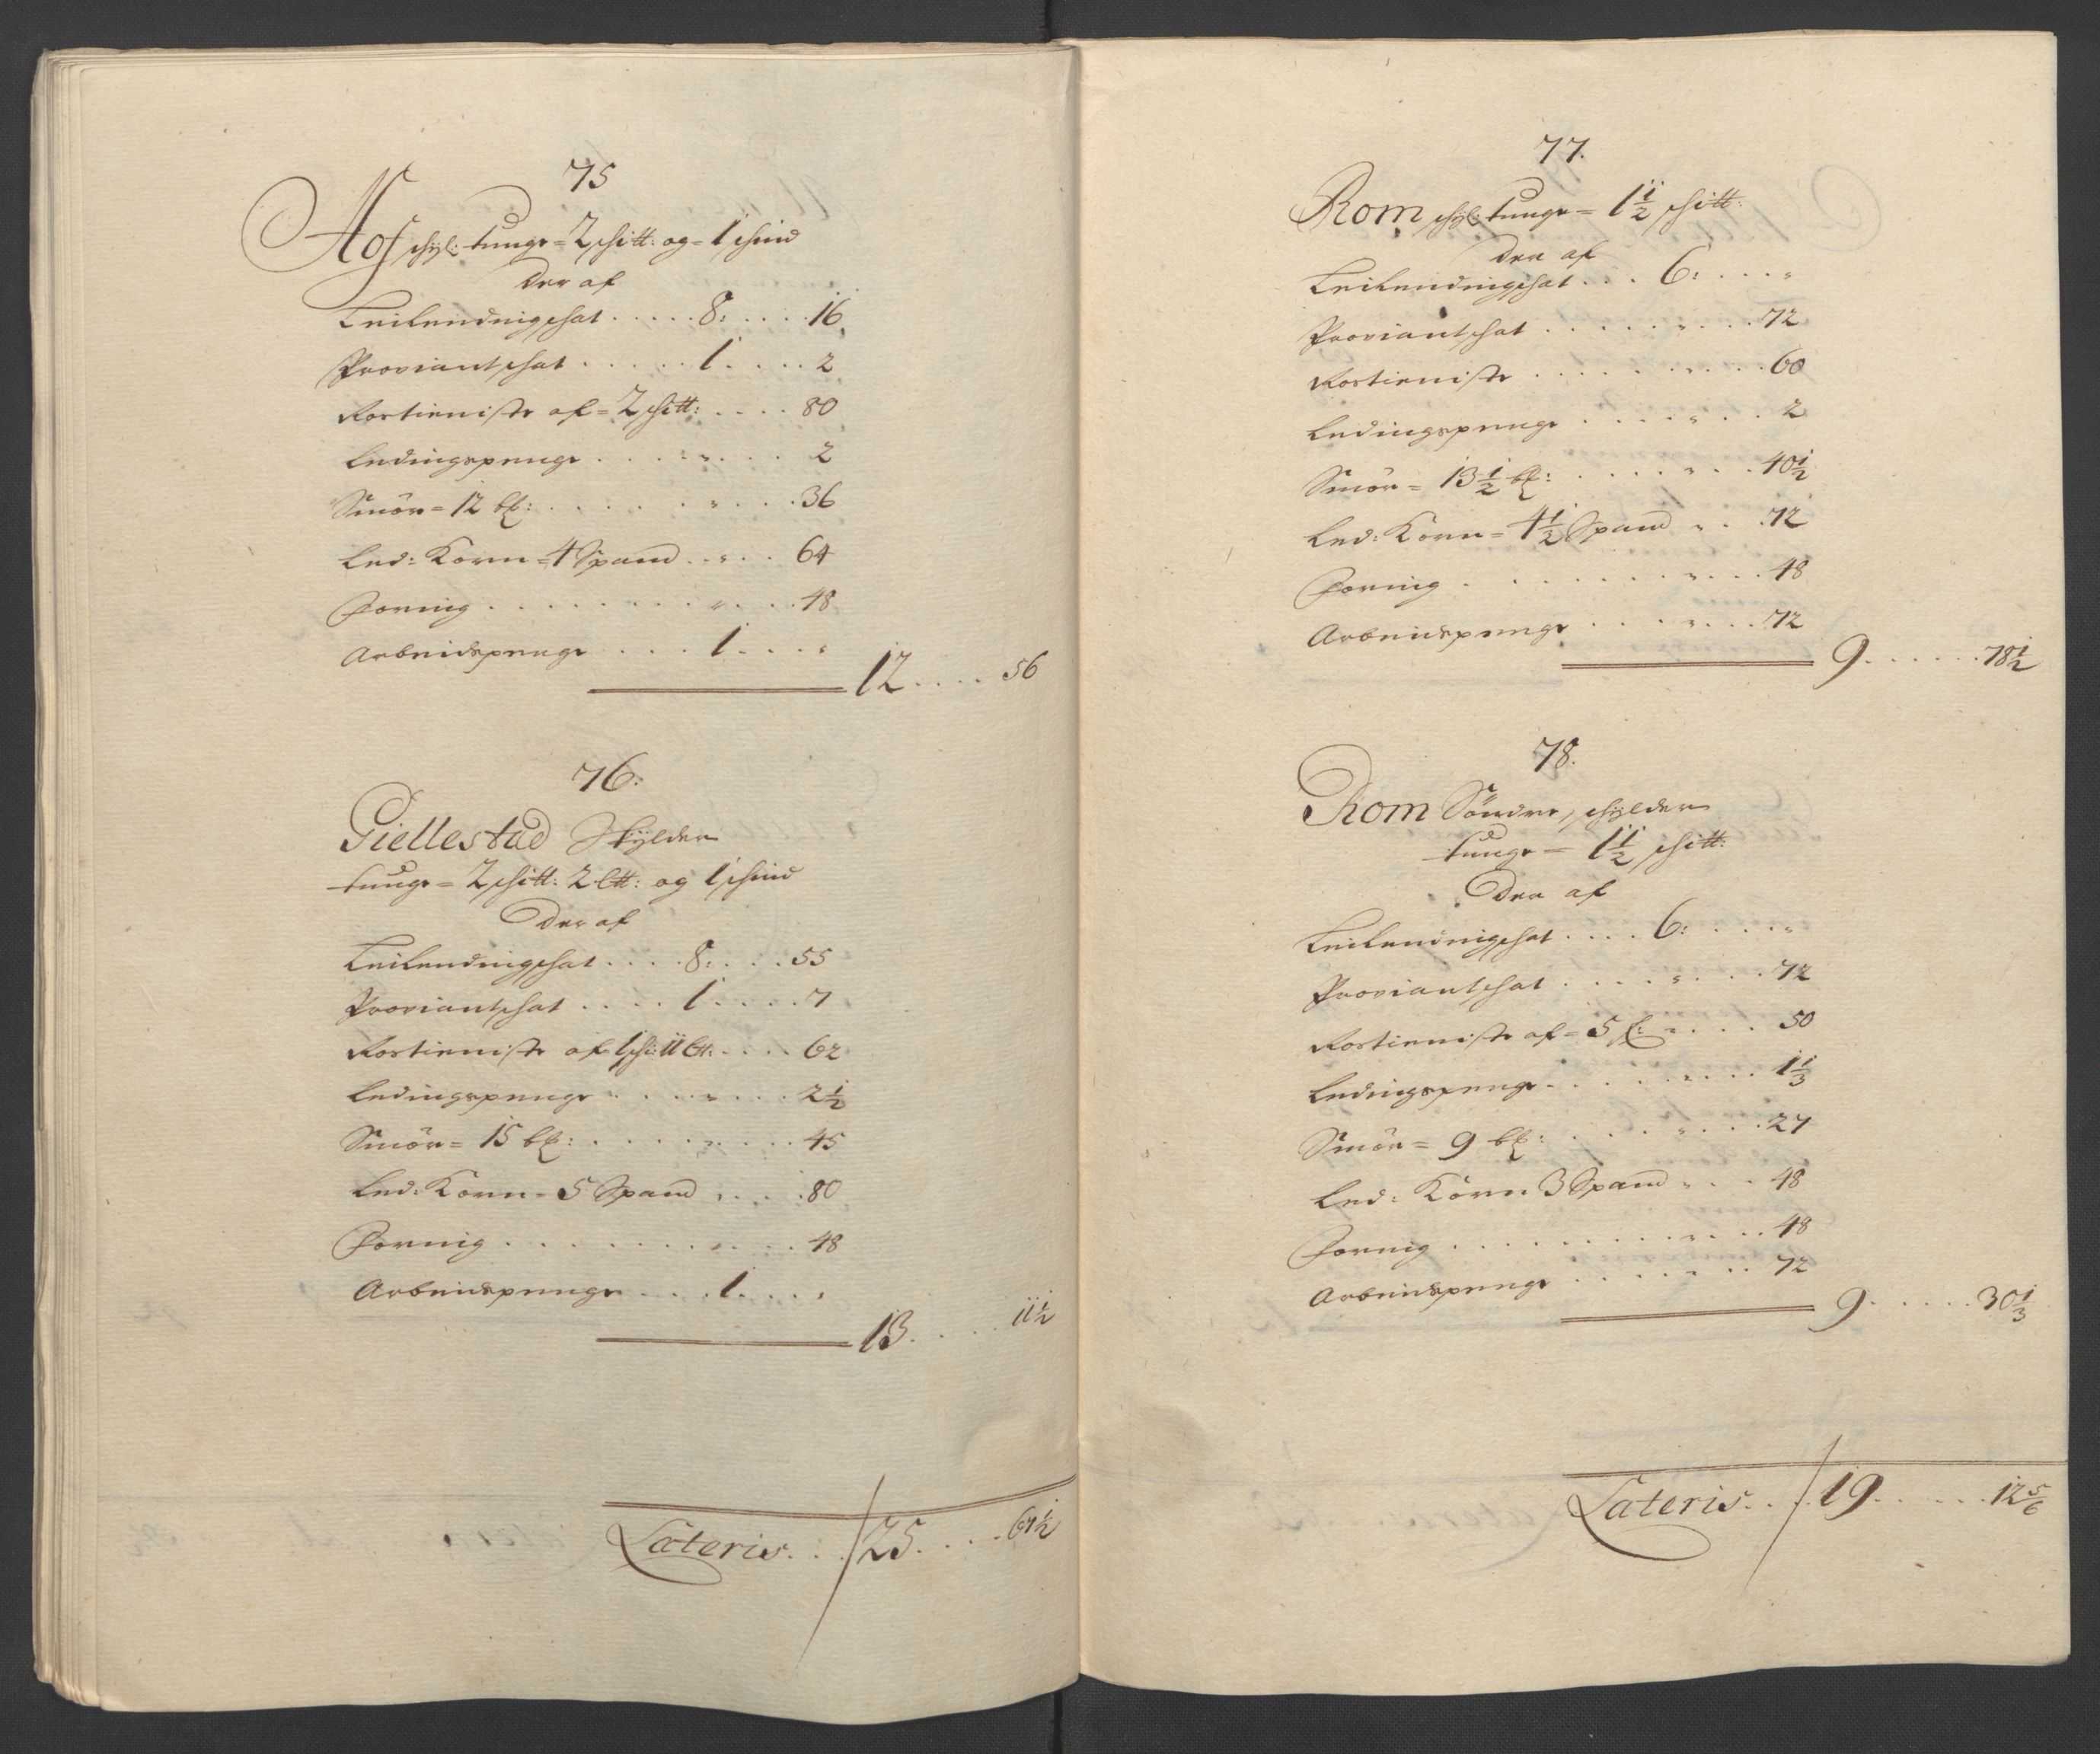 75
Hof schyl: tunge = 2 schitt: og = 1 schind
Der af
Leilendingschat . . . . . 8: . . . . 16
Proviantschat . . . . . 1 . . . . 2
Rostieniste af = 2 schitt: . . . . 80
Ledingspenge . . . . „ . . . 2
Smör = 12 bf: . . . . . . „ . . . 36
Led: Korn = 4 Spand . . „ . . 64
Foring . . . . . . . . „ . . . 48
Arbeidspenge . . . 1 . . . „
12 . . . . 56
76:
Giellestad Skylder
tunge = 2 schitt: 2 ltt: og 1 schind
Der af
Leilendingschat . . . . 8: . . . 55
Proviantschat . . . . 1 . . . . 7
Rostieniste af 1 sch: 11 ltt: . . . . 62
Ledingspenge . . . . „ . . . 2 1/2
Smör = 15 bf: . . . . . „ . . . 45
Led: Korn = 5 Spand „ . . . 80
Fornig . . . . . . . . „ . . . 48
Arbeidspenge . . . 1 . . . „
13 . . . . 11 1/2
Lateris . . . 25 . . . . 67 1/2
77.
Rom schyl: tunge = 1 1/2 schitt:
Der af
Leilendingschat . . . 6: . . . „
Proviantschat . . . . . . „ . . . 72
Rostieniste . . . . . . „ . . . 60
Ledingspenge . . . . . „ . . . 2
Smör = 13 1/2 bf: . . . . . „ . . 40 1/2
Led: Korn = 4 1/2 Spand „ . . 72
Fornig . . . . . . . . „ . . . 48
Arbeidspenge . . . . „ . . . 72
9 . . . . . . 78 1/2
78.
Rom Söndre, schylder
tunge = 1 1/2 schitt:
Der af
Leilendingschat . . . . 6: . . . „
Proviantschat . . . . . „ . . . 72
Rostieniste af = 5 f: „ . . . 50
Ledingspenge . . . . . „ . . . 1 1/3
Smör = 9 bf: . . . . . „ . . . 27
Led: Korn 3 Spand „ . . . 48
Fornig . . . . . . . . . „ . . . 48
Arbeidspenge . . . . . „ . . 72
9 . . . . . . 30 1/3
Lateris . . . 19 . . . . . . 12 5/6